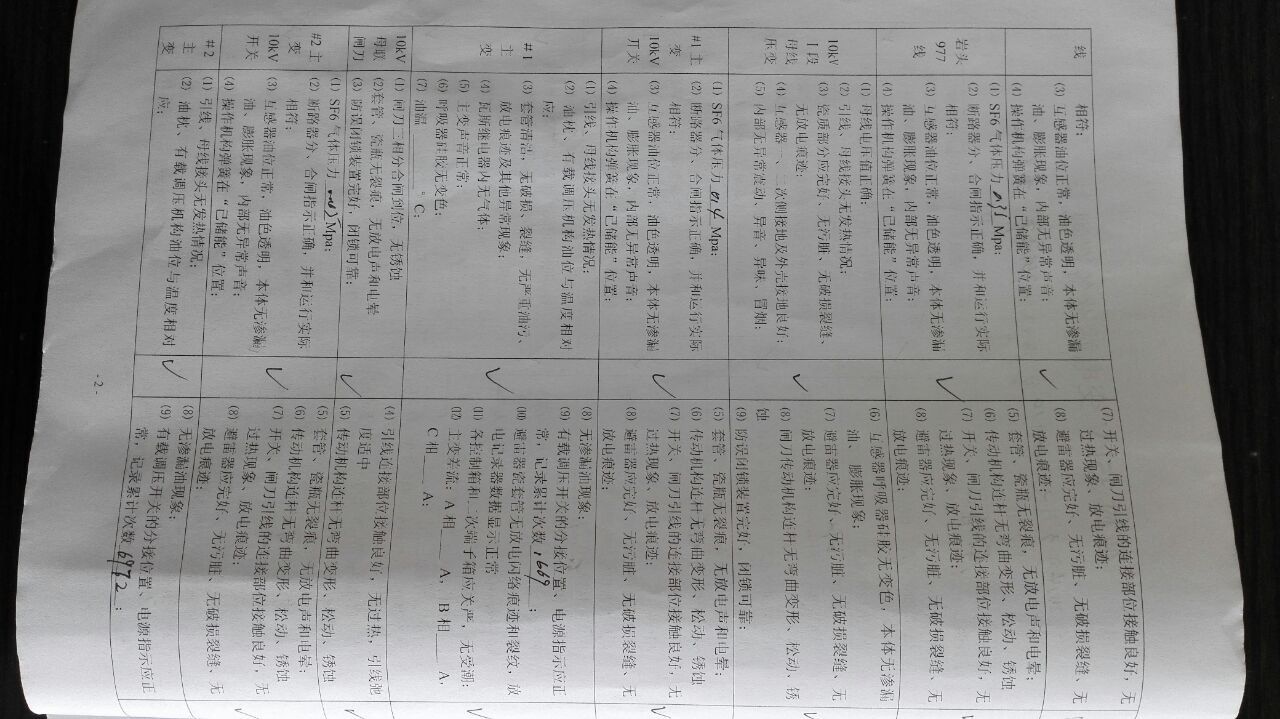 线
相符;
(3) 互感器油位正常, 油色透明, 本体无渗漏
油、膨胀现象, 内部无异常声音;
(4) 操作机构弹簧在“已储能”位置;
(7) 开关、闸刀引线的连接部位接触良好, 无
过热现象、放电痕迹;
(8) 避雷器应完好、无污脏、无破损裂缝、无
放电痕迹;
岩头
977
线
(1) SF6 气体压力 Mpa;
(2) 断路器分、合闸指示正确, 并和运行实际
相符;
(3) 互感器油位正常, 油色透明, 本体无渗漏
油、膨胀现象, 内部无异常声音;
(4) 操作机构弹簧在“已储能”位置;
(5) 套管、瓷瓶无裂痕, 无放电声和电晕;
(6) 传动机构连杆无弯曲变形、松动、锈蚀
(7) 开关、闸刀引线的连接部位接触良好, 无
过热现象、放电痕迹;
(8) 避雷器应完好、无污脏、无破损裂缝、无
放电痕迹;
10kV
I 段
母线
压变
(1) 母线电压值正确;
(2) 引线、母线接头无发热情况;
(3) 瓷质部分应完好、无污脏、无破损裂缝、
无放电痕迹;
(4) 互感器一、二次侧接地及外壳接地良好;
(5) 内部无异常震动、异音、异味、冒烟;
(6) 互感器呼吸器硅胶无变色, 本体无渗漏
油、膨胀现象;
(7) 避雷器应完好、无污脏、无破损裂缝、无
放电痕迹;
(8) 闸刀传动机构连杆无弯曲变形、松动、锈
蚀
(9) 防误闭锁装置完好, 闭锁可靠;
#1 主
变
10kV
开关
(1) SF6 气体压力 0.4 Mpa;
(2) 断路器分、合闸指示正确, 并和运行实际
相符;
(3) 互感器油位正常, 油色透明, 本体无渗漏
油、膨胀现象, 内部无异常声音;
(4) 操作机构弹簧在“已储能”位置;
(5) 套管、瓷瓶无裂痕, 无放电声和电晕;
(6) 传动机构连杆无弯曲变形、松动、锈蚀
(7) 开关、闸刀引线的连接部位接触良好, 无
过热现象、放电痕迹;
(8) 避雷器应完好、无污脏、无破损裂缝、无
放电痕迹;
#1
主
变
(1) 引线、母线接头无发热情况;
(2) 油枕、有载调压机构油位与温度相对
应;
(3) 套管清洁, 无破损、裂缝, 无严重油污、
放电痕迹及其他异常现象;
(4) 瓦斯继电器内无气体;
(5) 主变声音正常;
(6) 呼吸器硅胶无变色;
(7) 油温____°C;
(8) 无渗漏油现象;
(9) 有载调压开关的分接位置、电源指示应正
常, 记录累计次数 ;
(10) 避雷器瓷套管无放电闪络痕迹和裂纹, 放
电记录器数据显示正常
(11) 各控制箱和二次端子箱应关严, 无受潮;
(12) 主变差流: A 相____A, B 相____A,
C 相____A;
10kV
母联
闸刀
(1) 闸刀三相分合闸到位, 无锈蚀
(2) 套管、瓷瓶无裂痕, 无放电声和电晕
(3) 防误闭锁装置完好, 闭锁可靠;
(4) 引线连接部位接触良好, 无过热, 引线弛
度适中
(5) 传动机构连杆无弯曲变形、松动、锈蚀
#2 主
变
10kV
开关
(1) SF6 气体压力 Mpa;
(2) 断路器分、合闸指示正确, 并和运行实际
相符;
(3) 互感器油位正常, 油色透明, 本体无渗漏
油、膨胀现象, 内部无异常声音;
(4) 操作机构弹簧在“已储能”位置;
(5) 套管、瓷瓶无裂痕, 无放电声和电晕;
(6) 传动机构连杆无弯曲变形、松动、锈蚀
(7) 开关、闸刀引线的连接部位接触良好, 无
过热现象、放电痕迹;
(8) 避雷器应完好、无污脏、无破损裂缝、无
放电痕迹;
#2
主
变
(1) 引线、母线接头无发热情况;
(2) 油枕、有载调压机构油位与温度相对
应;
(8) 无渗漏油现象;
(9) 有载调压开关的分接位置、电源指示应正
常, 记录累计次数 6972 ;
- 2 -